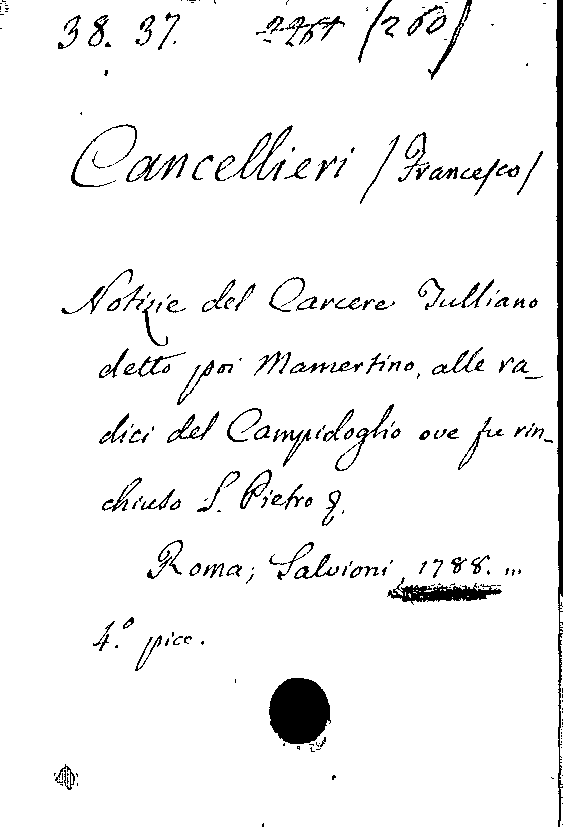 38. 37. 2264 (260)
Cancellieri /Francesco/
Notizie del Carcere Tulliano
detto poi Mamertino, alle ra_
dici del Campidoglio ove fu rin_
chiuso S. Pietro &.
Roma; Salvioni, 1788. ...
4.º picc.